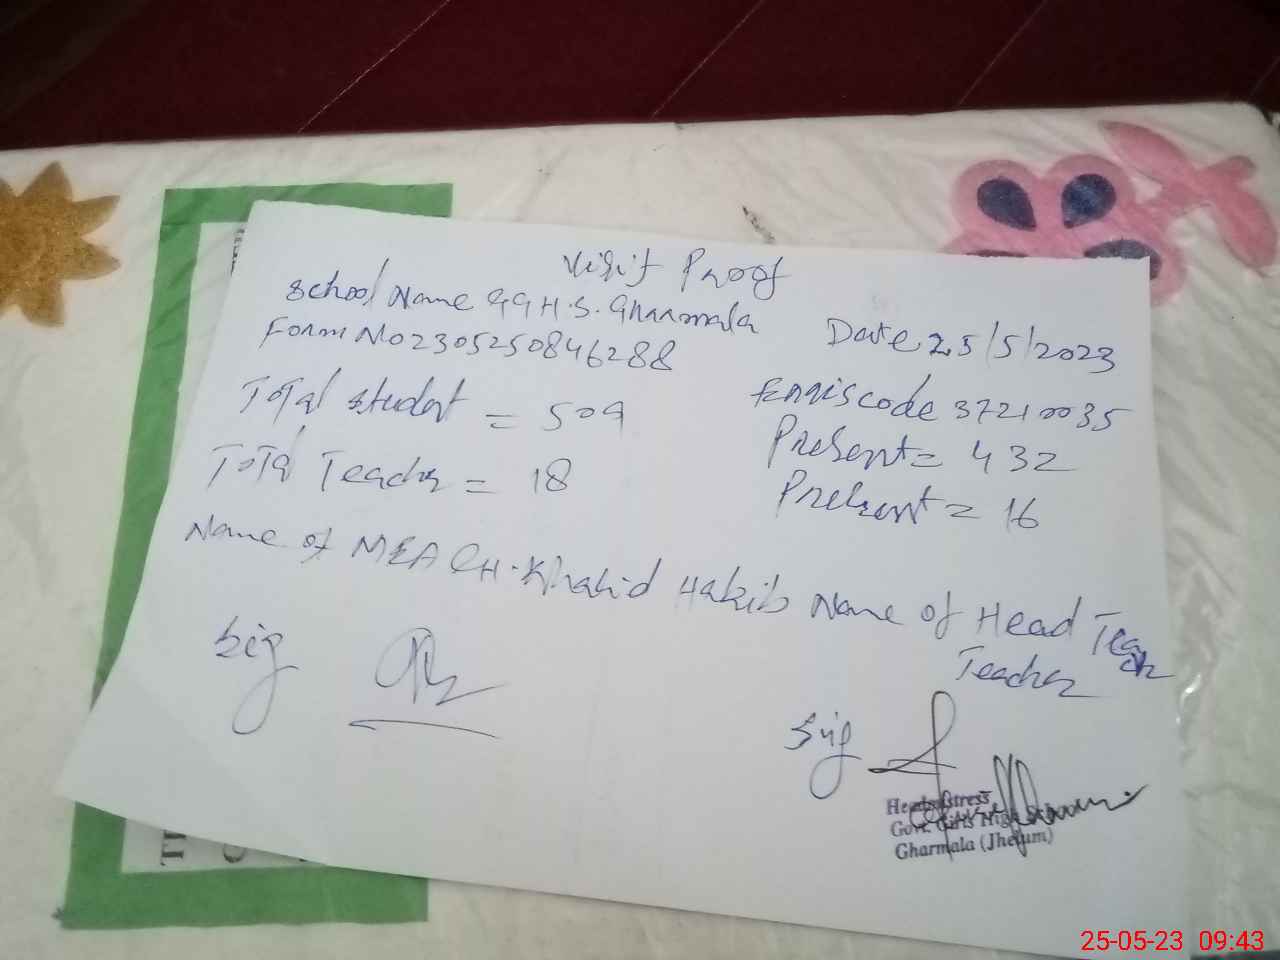 Visit Proof
School Name GGH.S. Gharmala
Date 25/5/2023
Form No 2305250846288
Emiscode 37210035
Total student = 509
Present = 432
Total Teacher = 18
Present = 16
Name of MEA CH. Khalid Habib Name of Head Teach
Teacher
Sig
Sig
Headmistress
Govt. Girls High School
Gharmala (Jhelum)
25-05-23 09:43